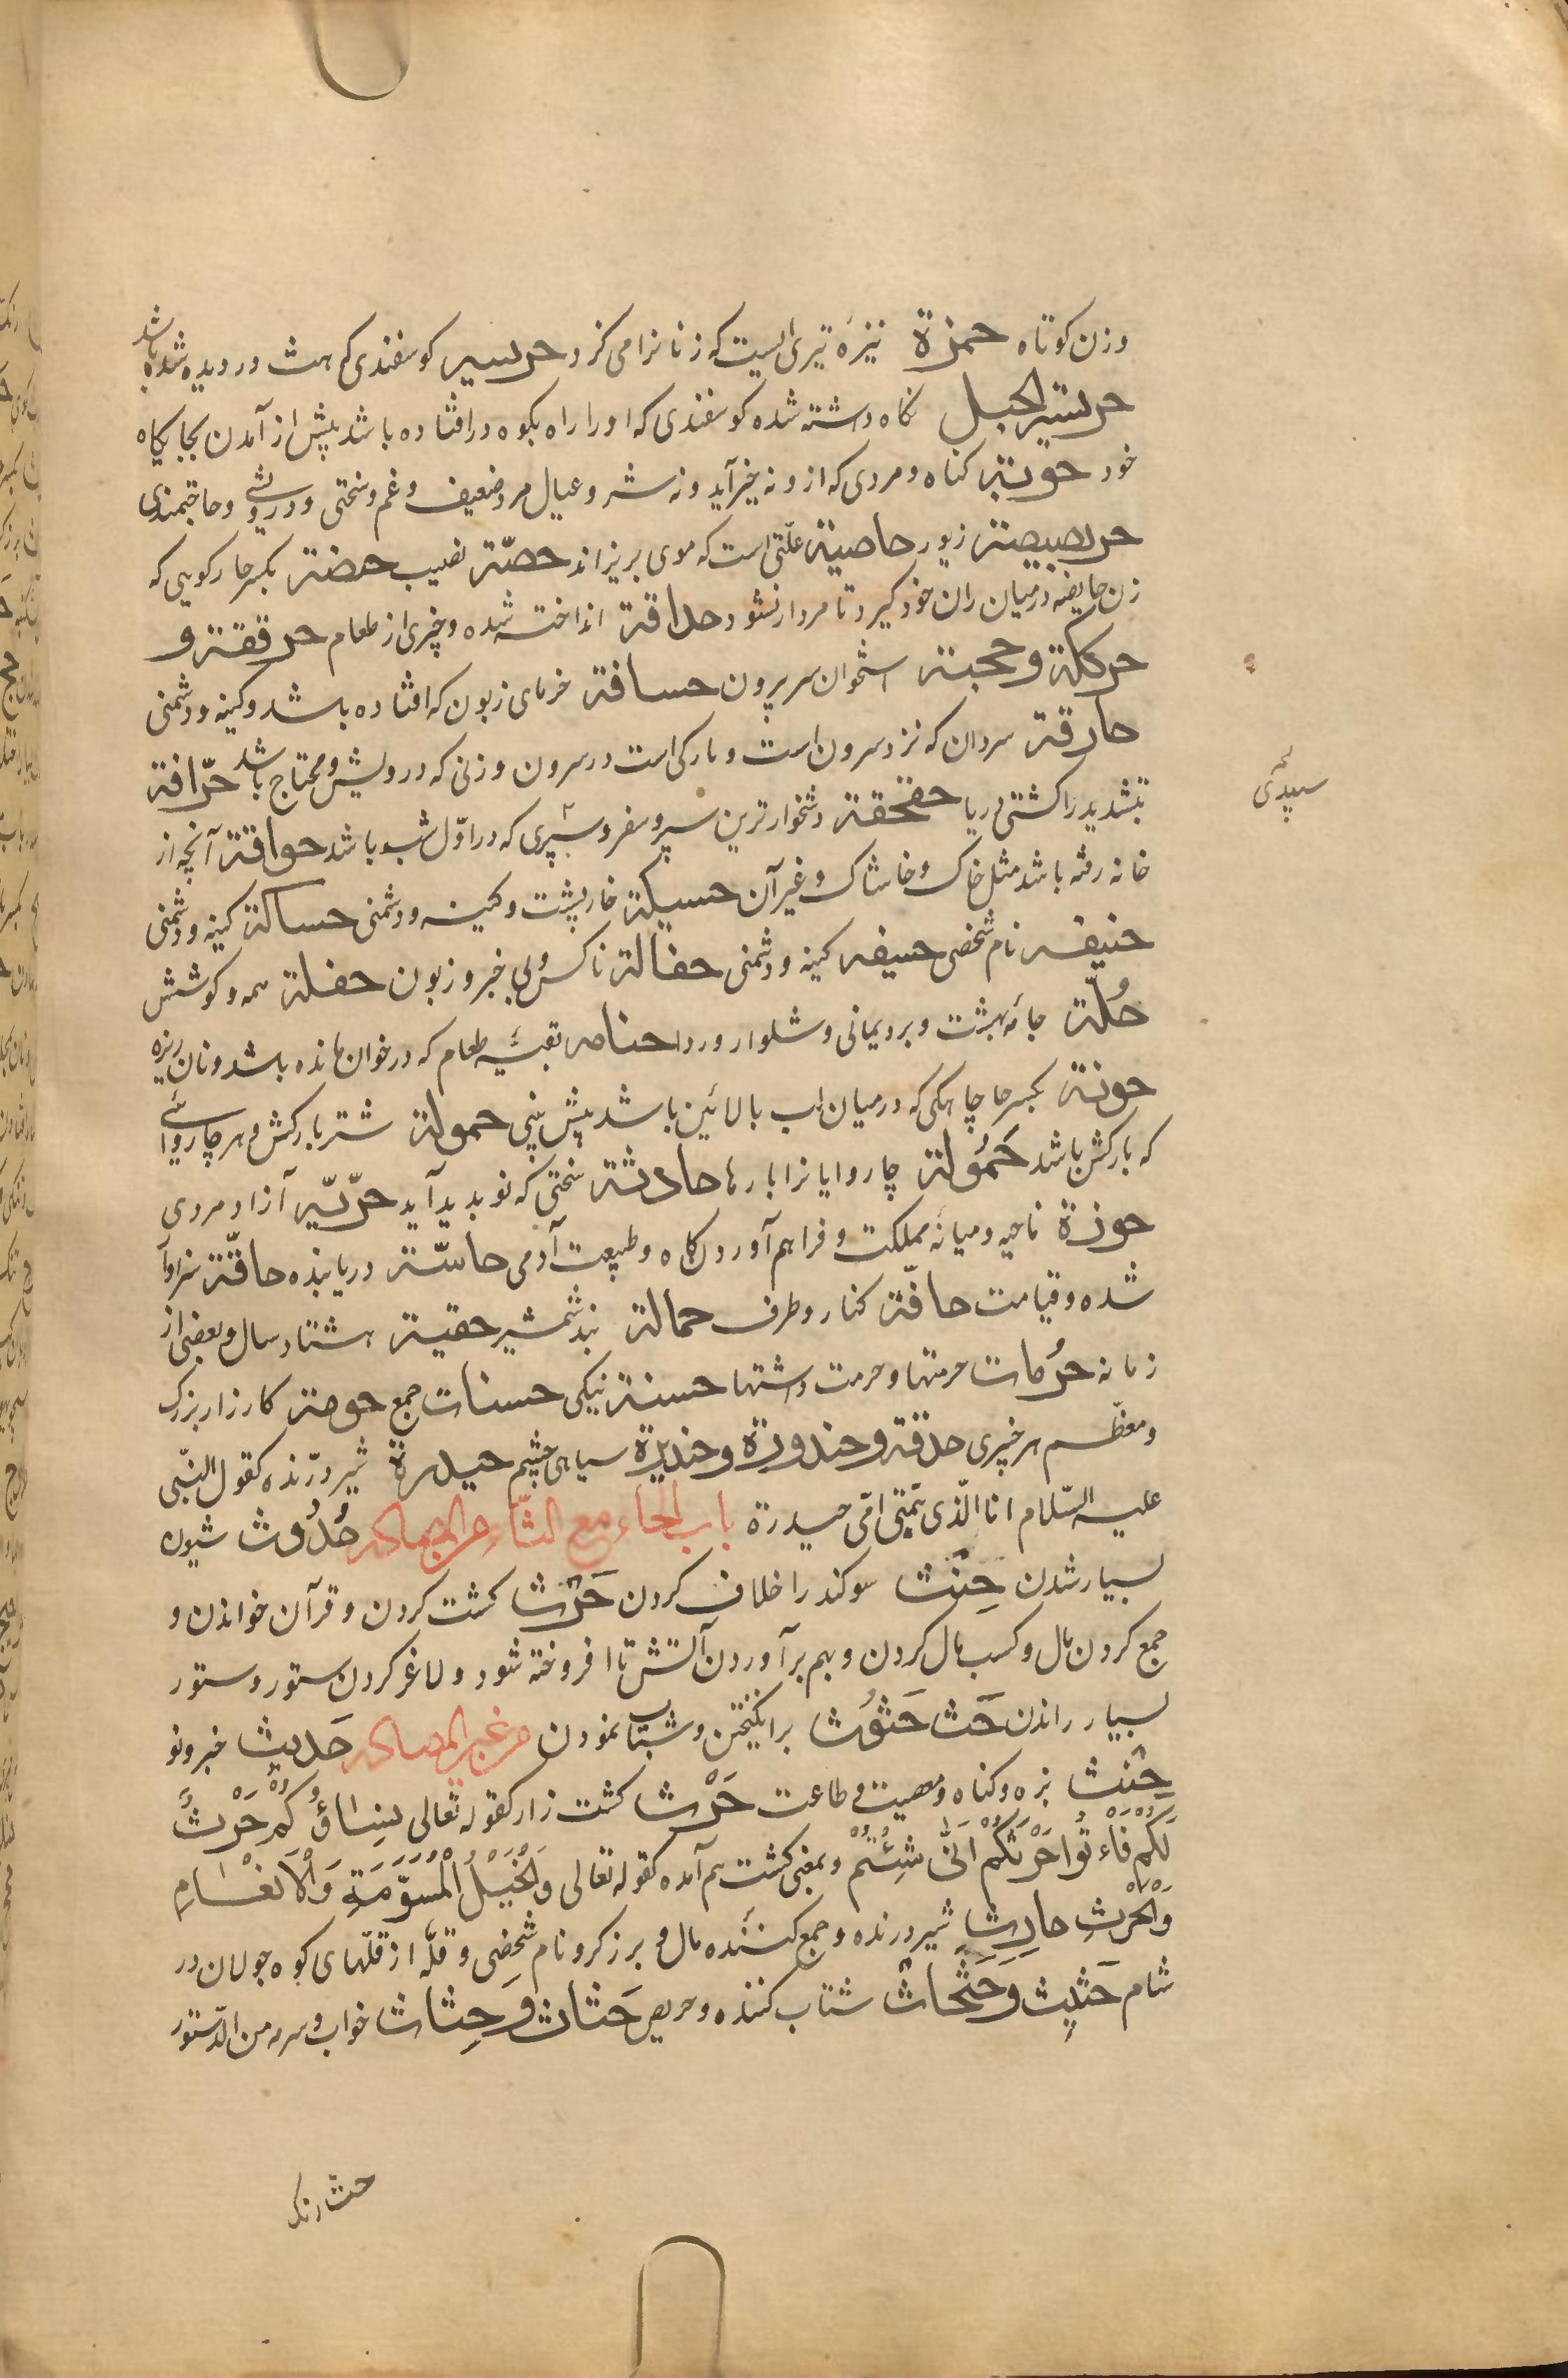 وزن کوتاه حمزة نیزهٔ تیری است که زنانرا می کزد حریسه کوسفندی که بشب دردیده شده باشد
حریسة الجبل نکاه داشته شده کوسفندی که اورا راه بکوه درافتاده باشد پیش از آمدن بجایکاه
خود حوبة کناه و مردی که ازو نه خیر آید و نه شر و عیال مرد ضعیف و غم و سختی و درویشی و حاجتمندی
حربصیصة زیور حاصة علتی است که موی بریزاند حصّة نصیب حضة بکسر حا رکویی که
زن حایضه در میان ران خود کیرد تا مردار نشود حذاقة انداخته شده و چیزی از طعام حرقفة و
حرککة و حجبة استخوان سر سرون حسافة خرمای زبون که افتاده باشد و کینه و دشمنی
حارقة سردان که نزد سرون است و یا رکی است در سرون و زنی که درویش و محتاج باشد حرّاقة
بتشدید را کشتی دریا حقحقة دشخوارترین سیر و سفر و سیری که در اوّل شب باشد حواقة آنچه از
خانه رفته باشد مثل خاک و خاشاک و غیر آن حسیکة خارپشت و کینه و دشمنی حساکة کینه و دشمنی
حنیفه نام شخصی حسیفه کینه و دشمنی حفالة ناکس و بی خبر و زبون حفلة همه و کوشش
حُلّة جامهٔ بهشت و برد یمانی و شلوار و ردا حنامه بقیهٔ طعام که در خوان مانده باشد و نان ریزه
حونة بکسر حا چاهکی که در میان لب بالائین باشد پیش بینی حمولة شتر بارکش و هر چاروائی
که بارکش باشد حَمُولة چاروایانرا بارها حادثة سختی که نو بدید آید حرّیّه آزاد مردی
حوزة ناحیه و میانهٔ مملکت و فراهم آوردن کاه و طبیعت آدمی حاسّة دریابنده حاقّة سزاوار
شده و قیامت حافّة کنار و طرف حمالة بند شمشیر حقبة هشتاد سال و بعضی از
زمانه حرُمات حرمتها و حرمت داشتها حسنة نیکی حسنات جمع حومة کارزار بزرک
و معظم هر چیزی حدقة و حندورة و حندیرة سیاهی چشم حیدرة شیر درّنده کقول النّبی
علیه السّلام انا الّذی سمّتنی امّی حیدرة باب الحاء مع الثّاء من المصادر حُدُوث شیون
بسیار شدن حِنْث سوکند را خلاف کردن حَرْث کشت کردن و قرآن خواندن و
جمع کردن مال و کسب مال کردن و بهم برآوردن آتش تا افروخته شود و لاغر کردن ستور و ستور
بسیار راندن حَث حَثُوث برانکیختن و شتاب نمودن من غیر المصادر حَدیث خبر و نو
حِنْث بزه و کناه و معصیت و طاعت حَرْث کشت زار کقوله تعالی نِسَاؤُکُمْ حَرْثٌ
لَکُمْ فَاءْتُوا حَرْثَکُمْ اَنّٰی شِئْتُمْ و بمعنی کشت هم آمده کقوله تعالی وَالْخَیْلِ الْمُسَوَّمَةِ وَالْاَنْعَامِ
وَالْحَرْثِ حارِث شیر درنده و جمع کنندهٔ مال و برزکر و نام شخصی و قلّه از قلّهای کوه جولان در
شام حَثیث و حَثْحاث شتاب کننده و حریص حَثاث و حِثاث خواب و سرمه من الدّستور
سپیدئی
حث رنک